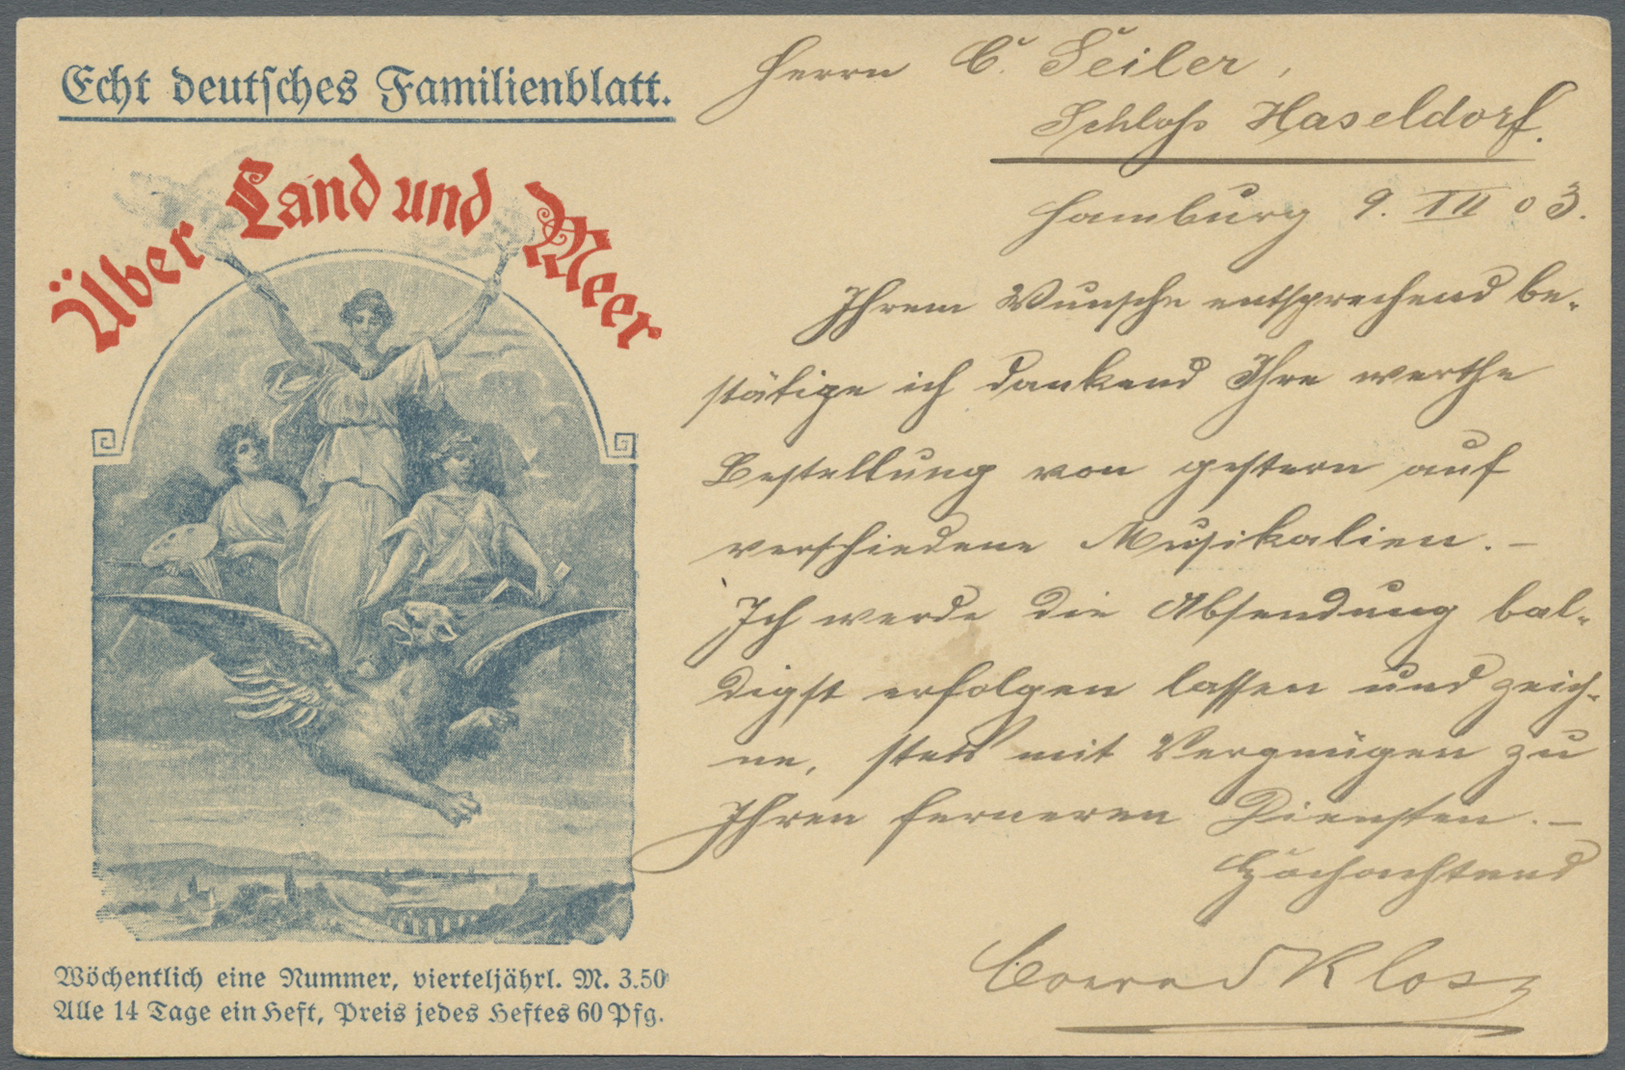 Echt deutsches Familienblatt.
Über Land und Meer
Wöchentlich eine Nummer, vierteljährl. M. 3.50
Alle 14 Tage ein Heft, Preis jedes Heftes 60 Pfg.
Herrn C. Seiler,
Schloss Haseldorf.
Hamburg 9. XII 03.
Ihrem Wunsche entsprechend be-
stätige ich dankend Ihre werthe
Bestellung von gestern auf
verschiedene Musikalien. –
Ich werde die Absendung bal-
digst erfolgen lassen und zeich-
ne, stets mit Vergnügen zu
Ihren ferneren Diensten. –
Hochachtend
Conrad Kloss